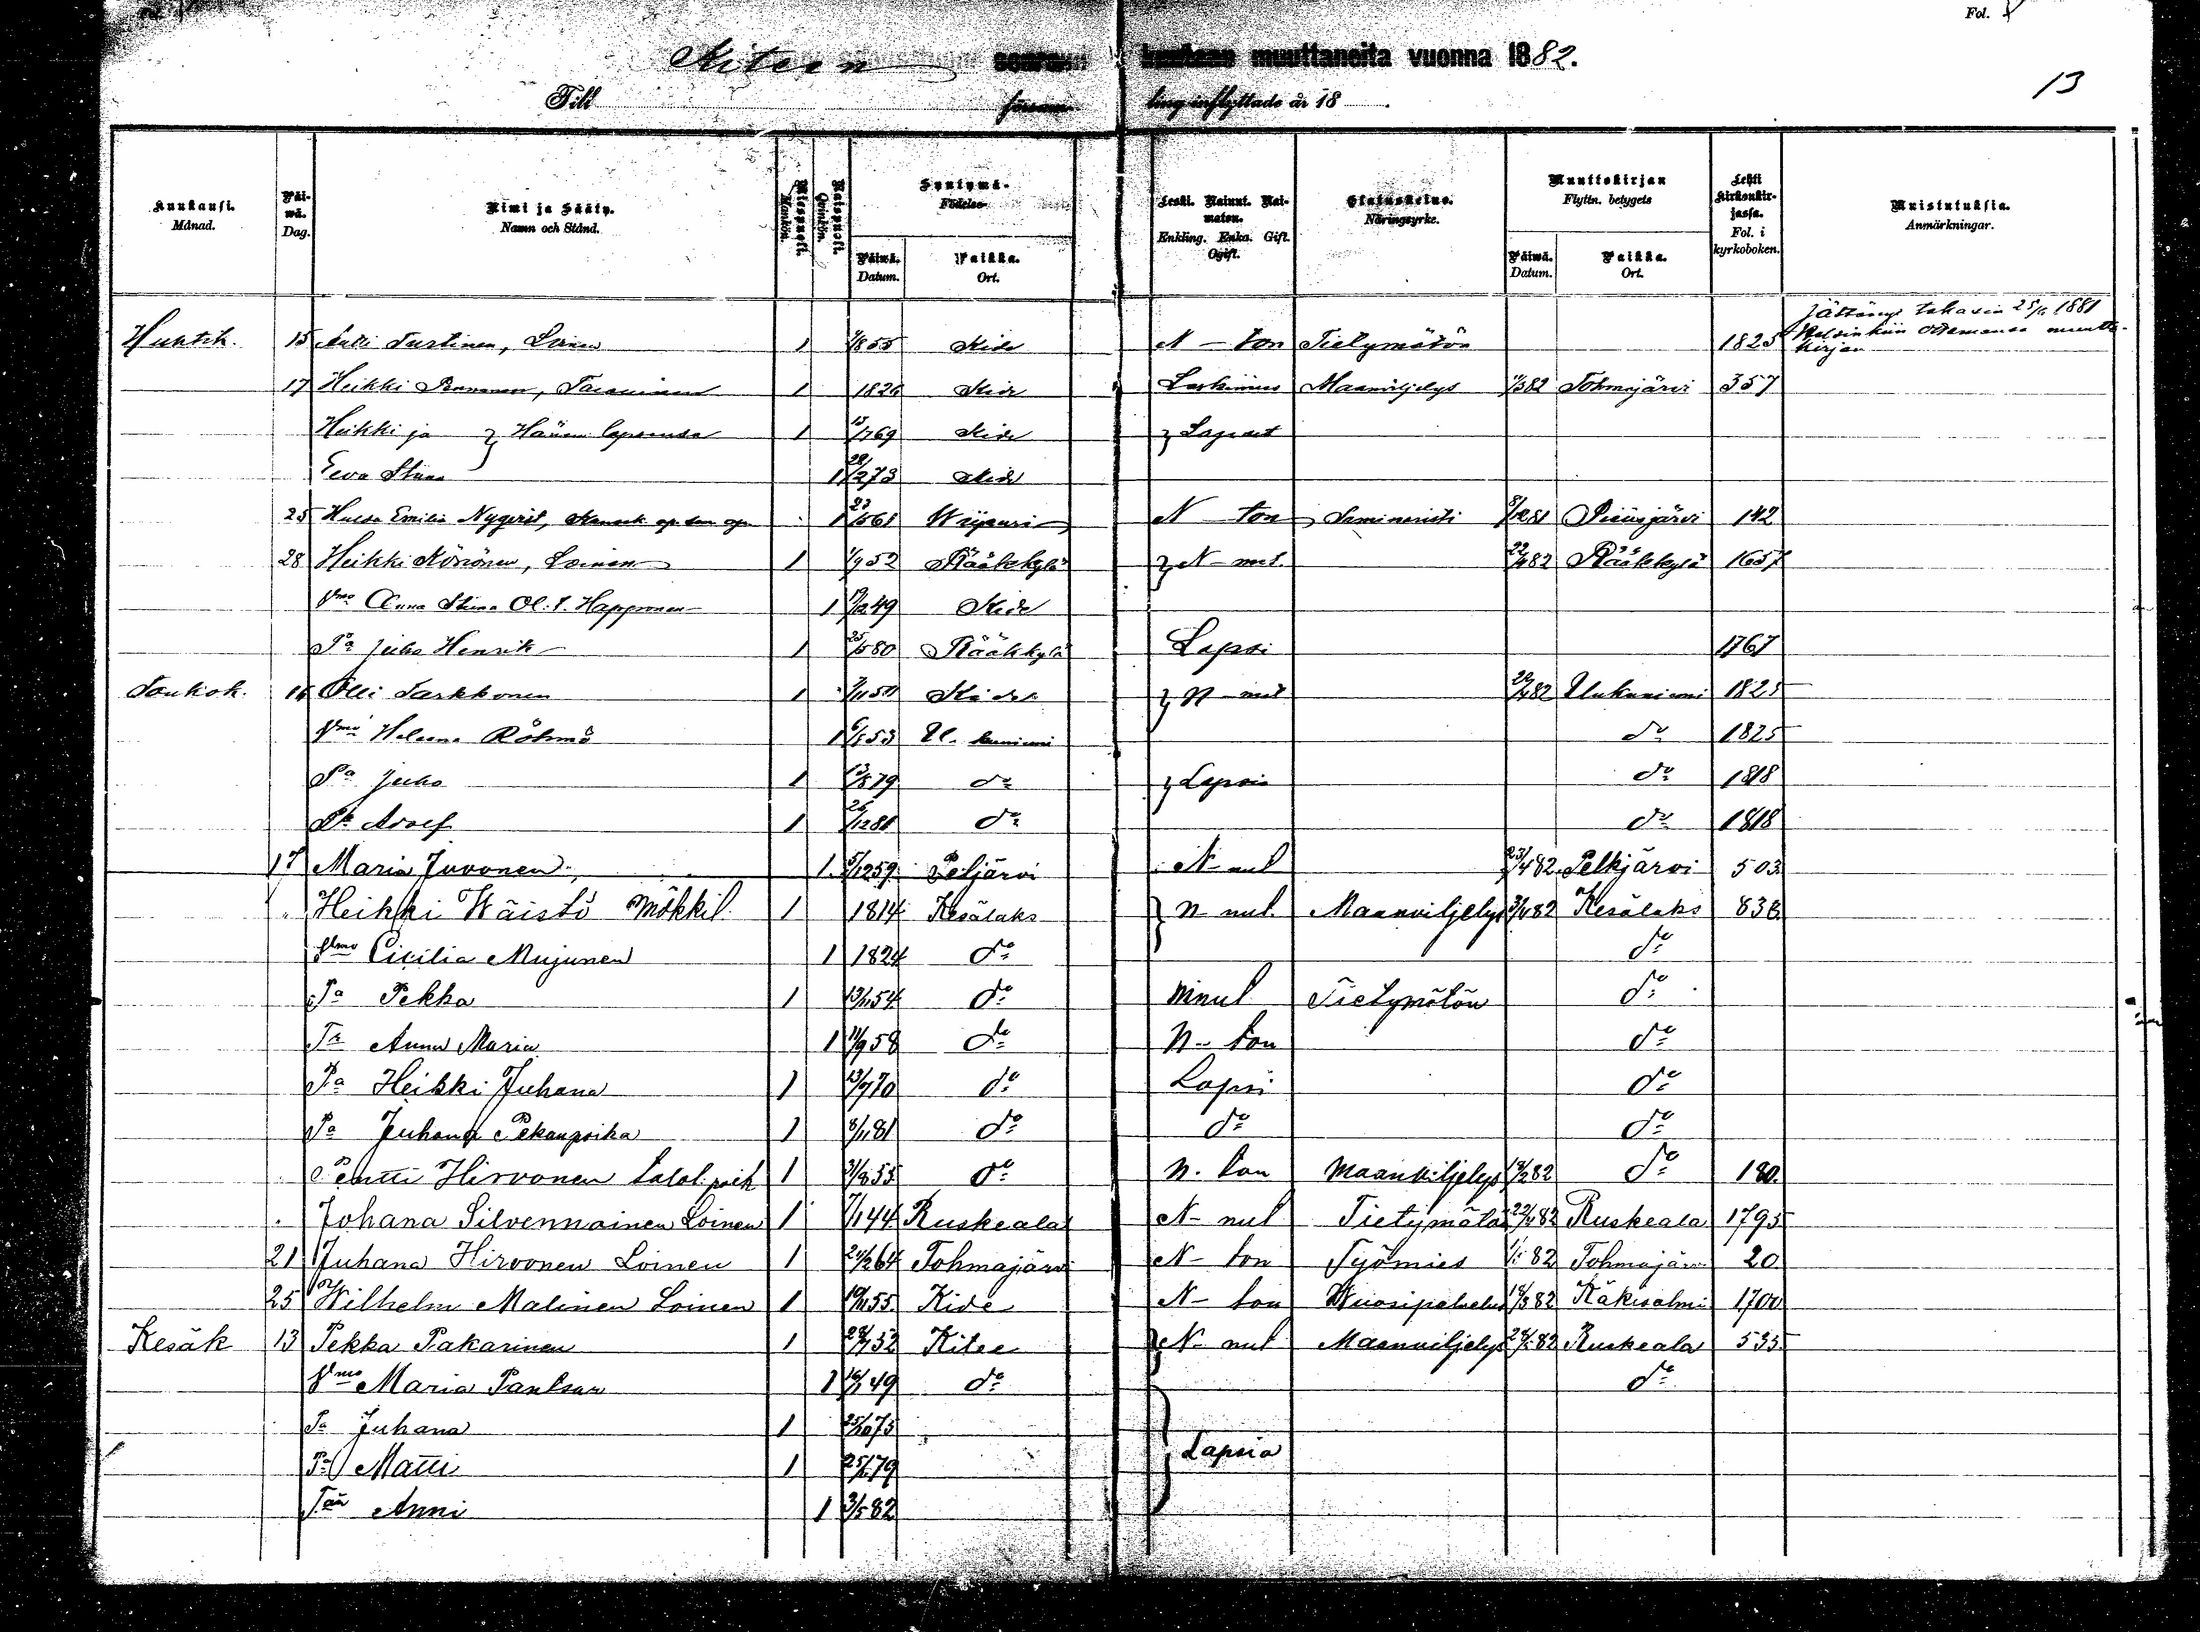 Fol.
Kiteen seurakuntaan muuttaneita vuonna 1882.
Till försam- ling inflyttade år 18 .
13
Kuukausi. Månad.
Päi-wä. Dag.
Nimi ja Sääty. Namn och Stånd.
Miespuoli. Mankön.
Naispuoli. Qvinkön.
Syntymä- Födelse-
Päiwä. Datum.
Paikka. Ort.
Leski. Nainut. Nai-maton. Enkling. Enka. Gift. Ogift.
Elatuskeino. Näringsyrke.
Muuttokirjan Flyttn. betygets
Päiwä. Datum.
Paikka. Ort.
Lehti kirkonkir-jassa. Fol. i kyrkoboken.
Muistutuksia. Anmärkningar.
Huhtik. 15 Antti Turtinen, Loinen 1 Kide N-ton Tietymätön 1825 Jättänyt takasin 1881 Helsinkiin ottamansa muutto-kirjan
17 Heikki 1 1826 Kide Leskimies Maanviljelys Tohmajärvi 357
Heikki ja } Hänen lapsensa 1 Kide } Lapset
Eeva Stiina 1 28/273 Kide
25 Emilia Nygrēt, 1 N-ton Seminaristi 142
28 Heikki Könönen, Loinen 1 1/952 Rääkkylä } N-nut 22/482 Rääkkylä 1657
Vmo Anna Stina Ol. t. Happonen 1 Kide
Pa Juho Henrik 1 25/580 Rääkkylä Lapsi 1767
Toukok. 16 Olli Tarkkonen 1 Kide } N-nut 22/482 Uukuniemi 1825
Vmo Helena Röhmö 1 6/853 U. kuniemi do 1825
Pa Juho 1 13/879 do } Lapsia do 1818
Pa Adolf 1 26/1281 do do 1818
17 Maria Juvonen 1 5/1259 Peljärvi N-nut 23/482 Pelkjärvi 503
" Heikki Wäistö Mökkil. 1 1814 Kesälaks } N-nut. Maanviljelys 3/482 Kesälaks 838
Vmo Cicilia Mujunen 1 1824 do do
Pa Pekka 1 13/154 do N nut Tietymätön do
Tr Anna Maria 1 11/958 do N-ton do
Pa Heikki Juhana 1 13/770 do Lapsi do
Pa Juhana Pekanpoika 1 8/1181 do do do
Pentti Hirvonen talol. poik 1 31/855 do N-ton Maanviljelys do 180.
Johana Silvennoinen Loinen 1 7/144 Ruskeala N-nut Tietymätön 22/482 Ruskeala 1795
21 Juhana Hirvonen Loinen 1 24/264 Tohmajärvi N-ton Työmies Tohmajärvi 20
25 Wilhelm Malinen Loinen 1 Kide N-ton Wuosipalvelus Käkisalmi 1700
Kesäk 13 Pekka Pakarinen 1 Kitee } N-nut Maanviljelys Ruskeala 535
Vmo Maria Pantsar 1 do do
Pa Juhana 1 25/1075
Pa Matti 1 } Lapsia
Tär Anni 1 3/582